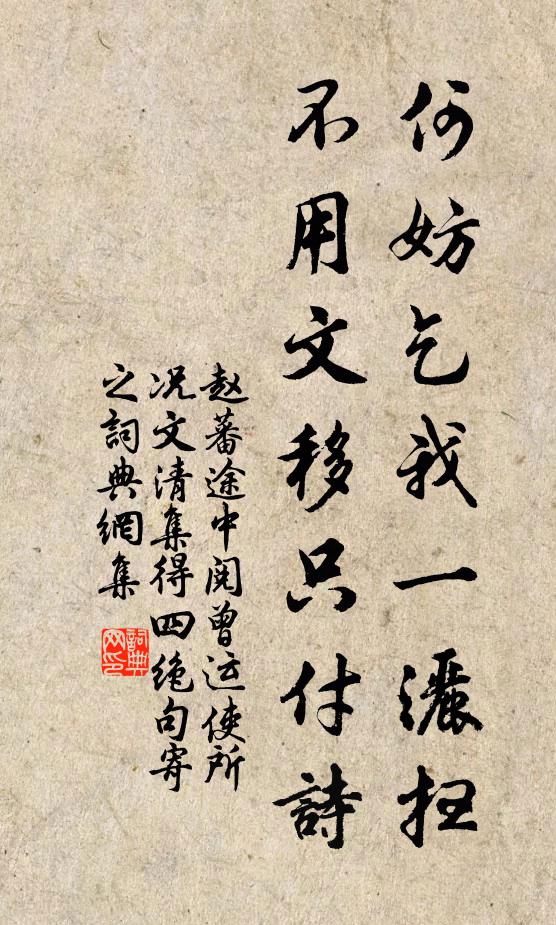 何妨乞我一灑扫
不用文移只付詩
赵蕃途中閱曾运使所
况文清集得四绝句寄
之詞典網集
詞典网印